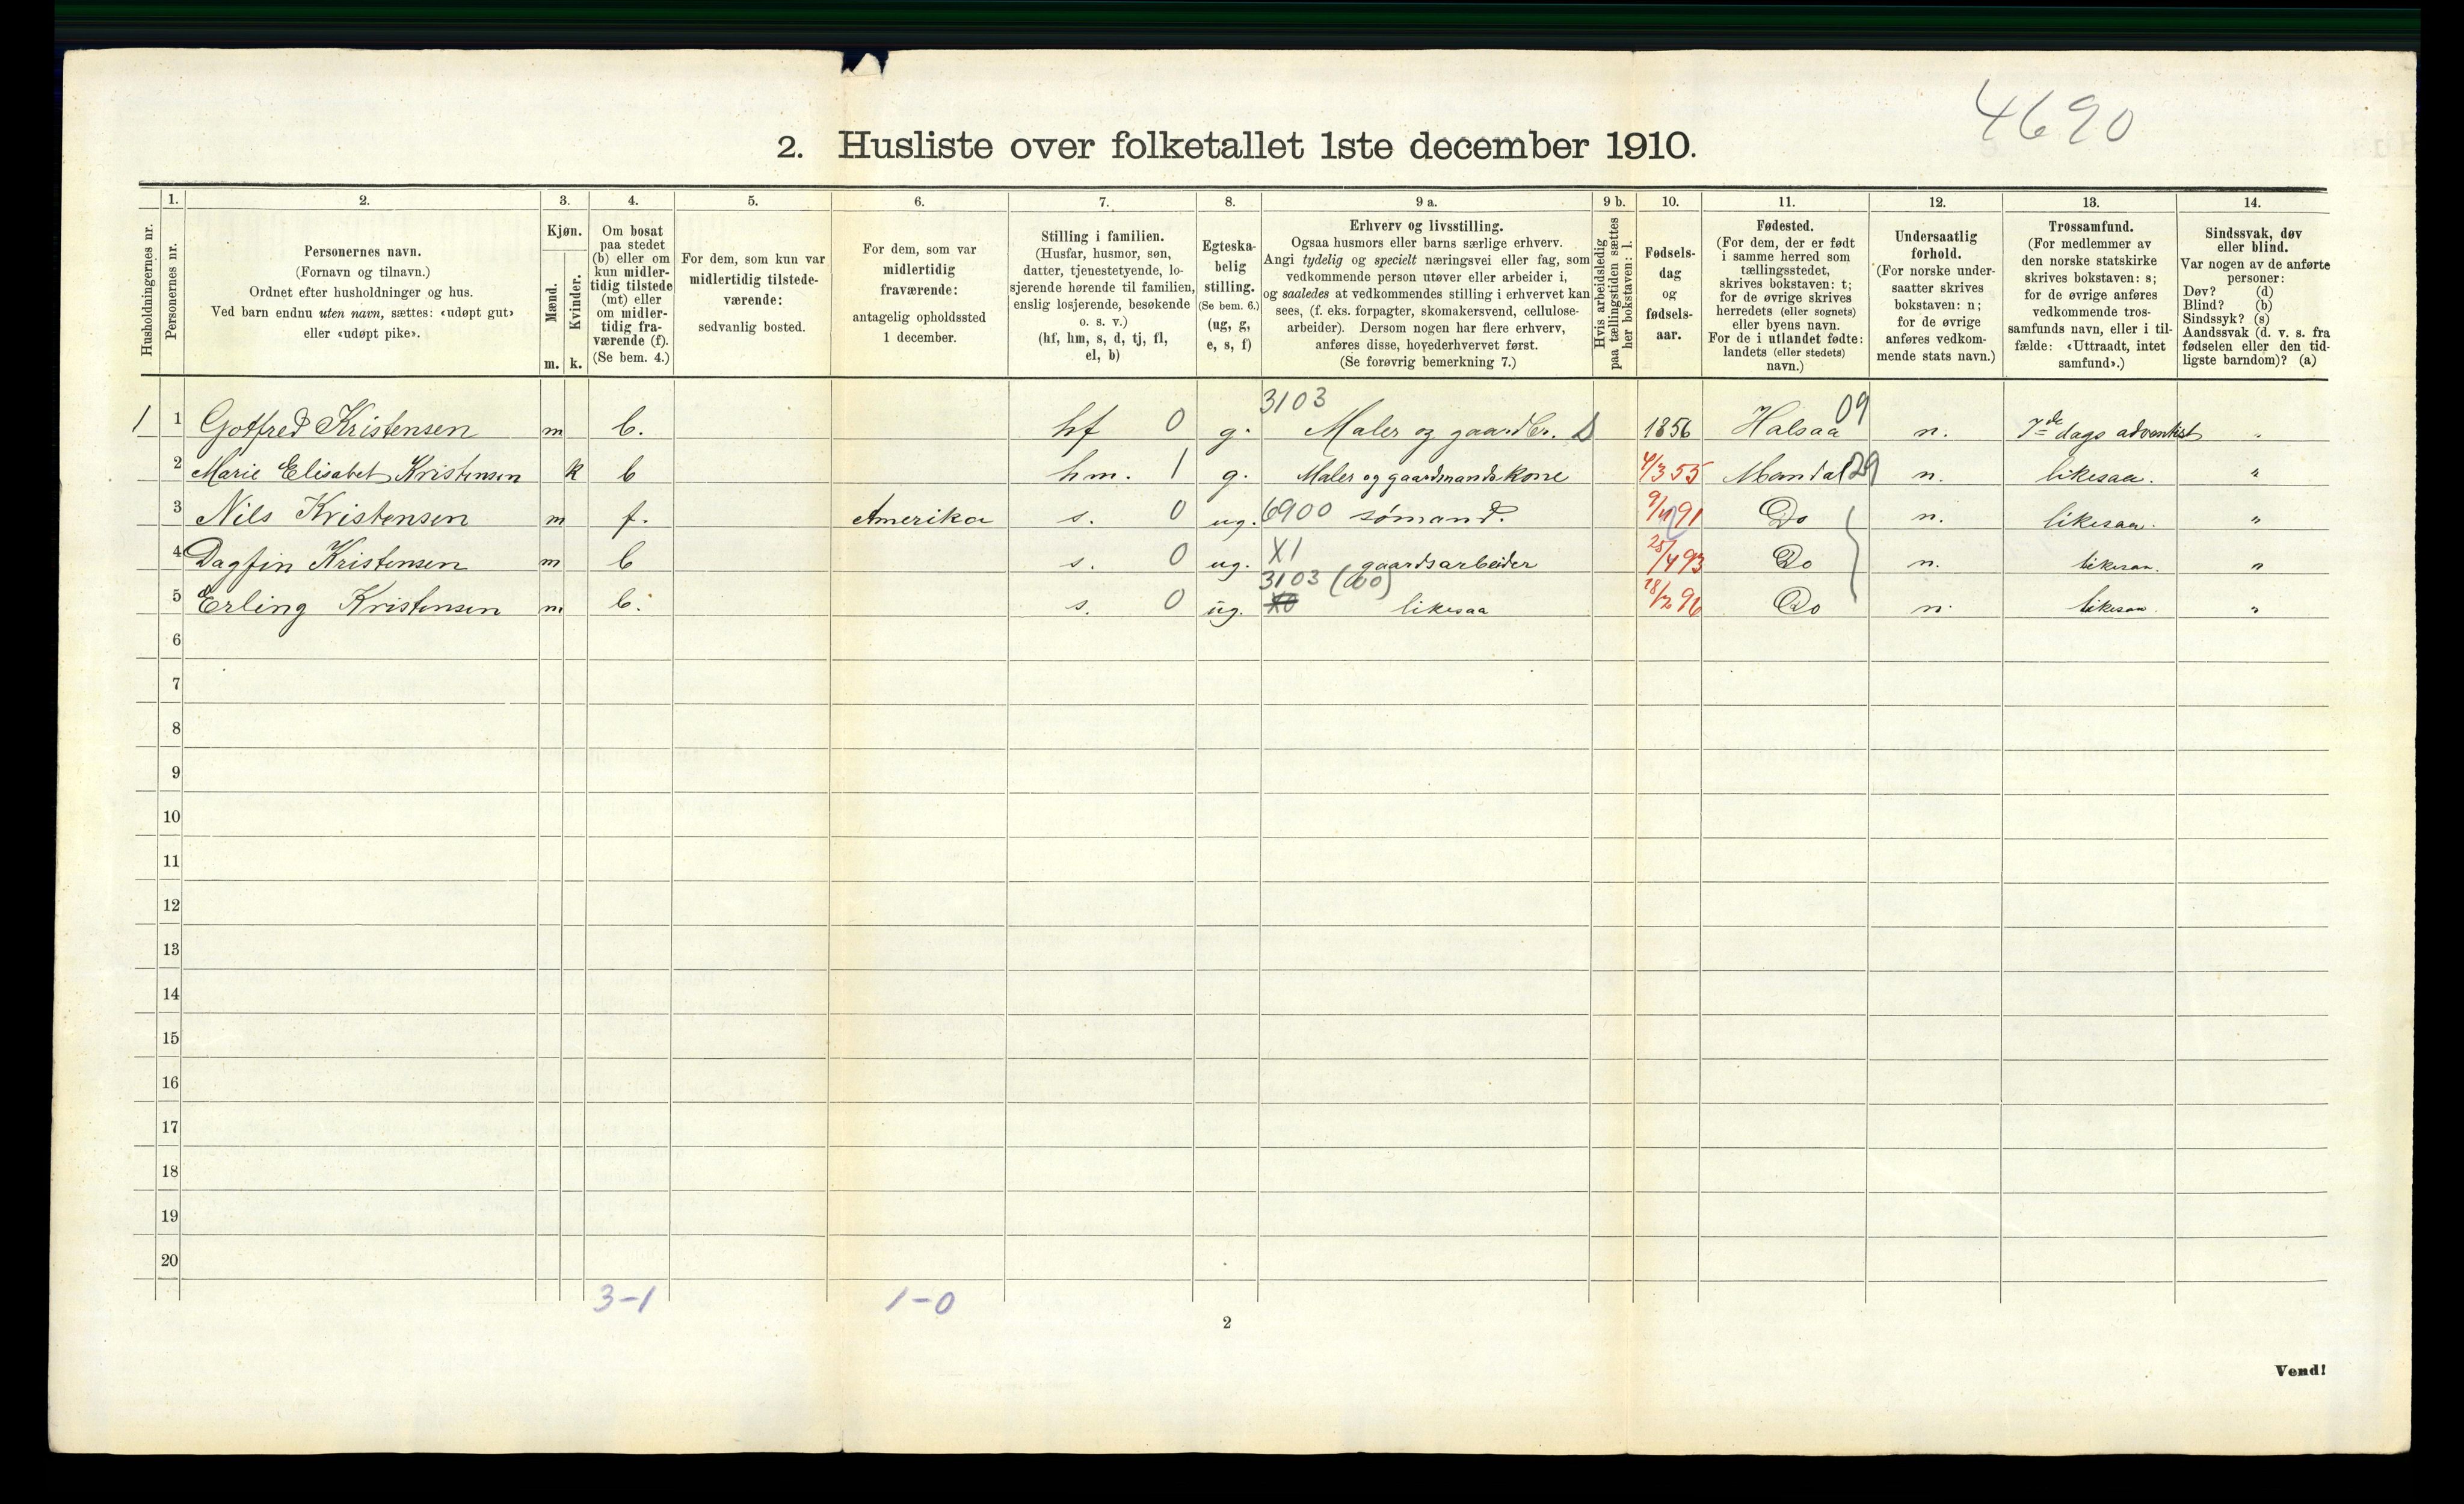 4690
2. Husliste over folketallet 1ste december 1910.
Husholdningernes nr.
1. Personernes nr.
2. Personernes navn.
(Fornavn og tilnavn.)
Ordnet efter husholdninger og hus.
Ved barn endnu uten navn, sættes: «udøpt gut»
eller «udøpt pike».
3. Kjøn.
Mænd. Kvinder.
m. k.
4. Om bosat
paa stedet
(b) eller om
kun midler-
tidig tilstede
(mt) eller
om midler-
tidig fra-
værende (f).
(Se bem. 4.)
5. For dem, som kun var
midlertidig tilstede-
værende:
sedvanlig bosted.
6. For dem, som var
midlertidig
fraværende:
antagelig opholdssted
1 december.
7. Stilling i familien.
(Husfar, husmor, søn,
datter, tjenestetyende, lo-
sjerende hørende til familien,
enslig losjerende, besøkende
o. s. v.)
(hf, hm, s, d, tj, fl,
el, b)
8. Egteska-
belig
stilling.
(Se bem. 6.)
(ug, g,
e, s, f)
9 a. Erhverv og livsstilling.
Ogsaa husmors eller barns særlige erhverv.
Angi tydelig og specielt næringsvei eller fag, som
vedkommende person utøver eller arbeider i,
og saaledes at vedkommendes stilling i erhvervet kan
sees, (f. eks. forpagter, skomakersvend, cellulose-
arbeider). Dersom nogen har flere erhverv,
anføres disse, hovederhvervet først.
(Se forøvrig bemerkning 7.)
9 b. Hvis arbeidsledig
paa tællingstiden sættes
her bokstaven: l.
10. Fødsels-
dag
og
fødsels-
aar.
11. Fødested.
(For dem, der er født
i samme herred som
tællingsstedet,
skrives bokstaven: t;
for de øvrige skrives
herredets (eller sognets)
eller byens navn.
For de i utlandet fødte:
landets (eller stedets)
navn.)
12. Undersaatlig
forhold.
(For norske under-
saatter skrives
bokstaven: n;
for de øvrige
anføres vedkom-
mende stats navn.)
13. Trossamfund.
(For medlemmer av
den norske statskirke
skrives bokstaven: s;
for de øvrige anføres
vedkommende tros-
samfunds navn, eller i til-
fælde: «Uttraadt, intet
samfund».)
14. Sindssvak, døv
eller blind.
Var nogen av de anførte
personer:
Døv? (d)
Blind? (b)
Sindssyk? (s)
Aandssvak (d. v. s. fra
fødselen eller den tid-
ligste barndom)? (a)
3103 09
1 1 Gotfred Kristensen m b. hf 0 g. Maler og gaardbr. S 1856 Halsaa n. 7de dags adventist "
2 Marie Elisabet Kristensen k b hm. 1 g. Maler og gaardmandskone 4/3 55 Mandal 29 n. likesaa. "
3 Nils Kristensen m f. Amerika s. 0 ug. 6900 sømand. 9/11 91 Do n. likesaa. "
4 Dagfin Kristensen m b s. 0 ug. X1 gaardsarbeider 25/4 93 Do n. likesaa. "
3103 (00)
5 Erling Kristensen m b. s. 0 ug. likesaa 28/2 96 Do n. likesaa. "
6
7
8
9
10
11
12
13
14
15
16
17
18
19
20
3-1 1-0
2
Vend!